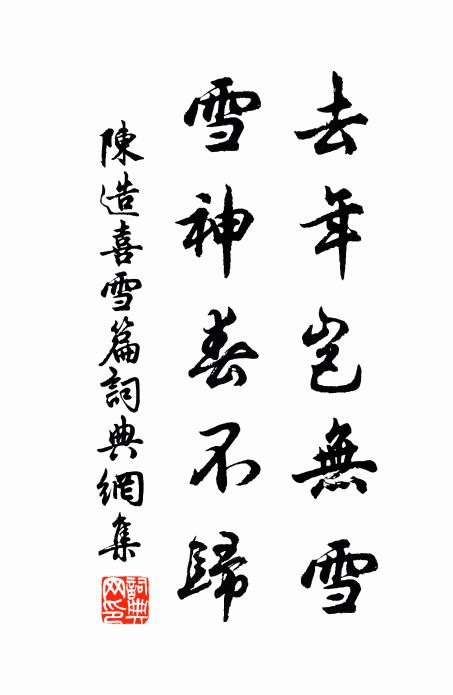 去年豈無雪
雪神春不歸
陳造喜雪篇詞典網集
詞典网印